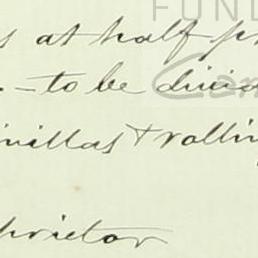 FUND
s at half p
- to be divid
villas & rollin
prietor